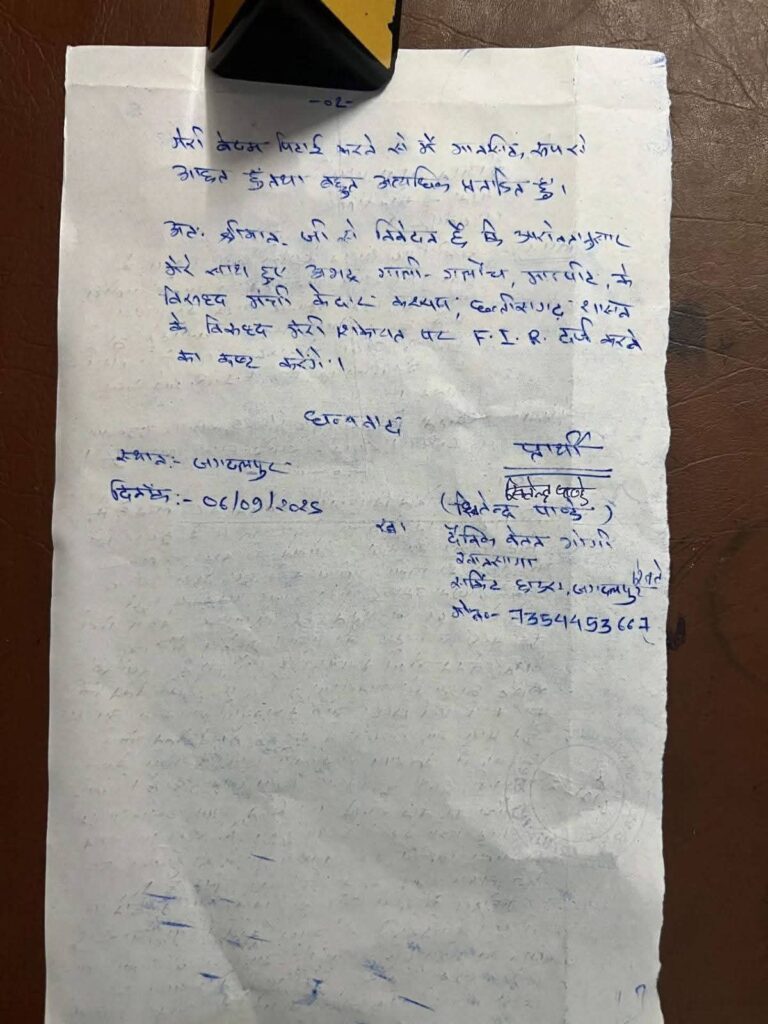 -02-
मेरी बेदम पिटाई करने से मैं मानसिक रूप से
आहत हूं तथा बहुत अत्यधिक प्रताडित हूं।
अतः श्रीमान् जी से निवेदन है कि आवेदनानुसार
मेरे साथ हुए अभद्र गाली-गलौच, मारपीट, के
विरूध्द मंत्री केदार कश्यप, छत्तीसगढ़ शासन
के विरूध्द मेरी शिकायत पर F.I.R. दर्ज करने
का कष्ट करेंगे।
धन्यवाद
स्थान:- जगदलपुर
दिनाँक:- 06/09/2025
प्रार्थी
(खितेन्द्र पाण्डे)
दैनिक वेतन भोगी
खानसामा
सर्किट हाउस, जगदलपुर
मो०नं०- 7354453667